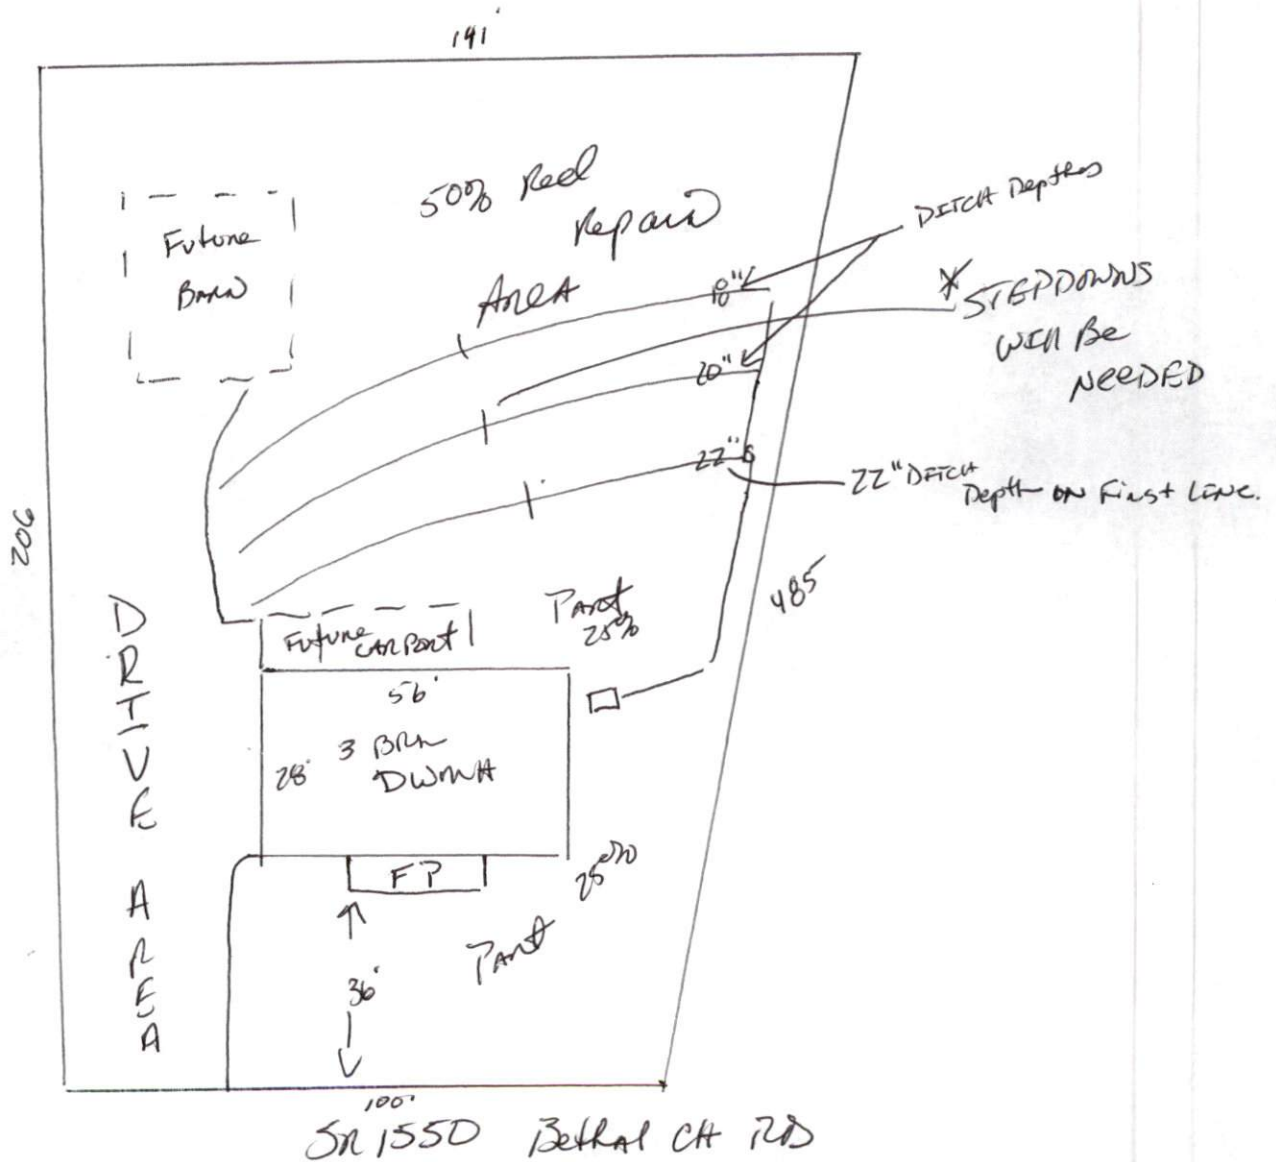 141'
50% Red
Repair
Area
Future
BARN
DITCH Depths
18"
* STEPDOWNS
Will Be
NeeDED
20"
22"
22" DITCH
Depth on First Line.
206
485
DRIVE AREA
Part
25%
Future
CARPORT
56'
28'
3 BRM
DWMH
FP
25%
Part
36'
100'
SR 1550 Bethal CH RD